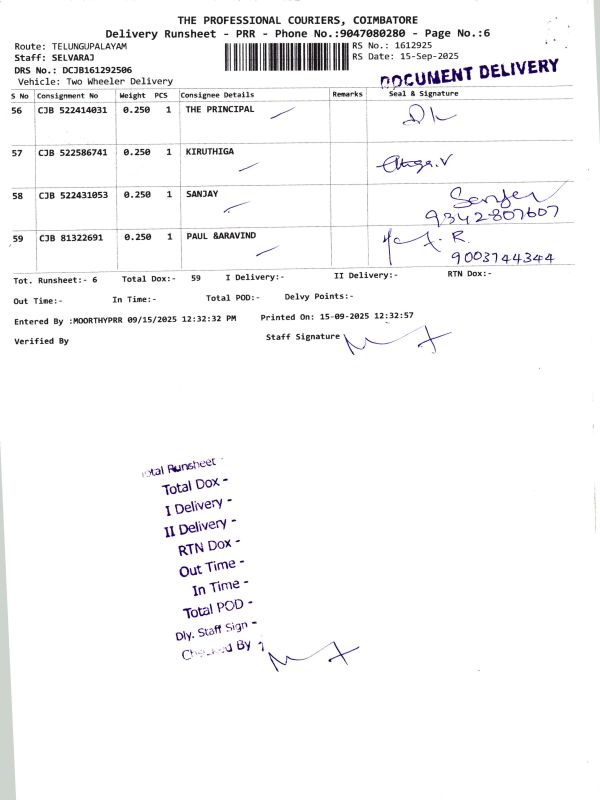 THE PROFESSIONAL COURIERS, COIMBATORE
Delivery Runsheet - PRR - Phone No.:9047080280 - Page No.:6
Route: TELUNGUPALAYAM RS No.: 1612925
Staff: SELVARAJ RS Date: 15-Sep-2025
DRS No.: DCJB161292506
Vehicle: Two Wheeler Delivery DOCUMENT DELIVERY
S No Consignment No Weight PCS Consignee Details Remarks Seal & Signature
56 CJB 522414031 0.250 1 THE PRINCIPAL
57 CJB 522586741 0.250 1 KIRUTHIGA
58 CJB 522431053 0.250 1 SANJAY Sanjay
9342807607
59 CJB 81322691 0.250 1 PAUL &ARAVIND R.
9003744344
Tot. Runsheet:- 6 Total Dox:- 59 I Delivery:- II Delivery:- RTN Dox:-
Out Time:- In Time:- Total POD:- Delvy Points:-
Entered By :MOORTHYPRR 09/15/2025 12:32:32 PM Printed On: 15-09-2025 12:32:57
Verified By Staff Signature
Total Runsheet -
Total Dox -
I Delivery -
II Delivery -
RTN Dox -
Out Time -
In Time -
Total POD -
Dly. Staff Sign -
Checked By